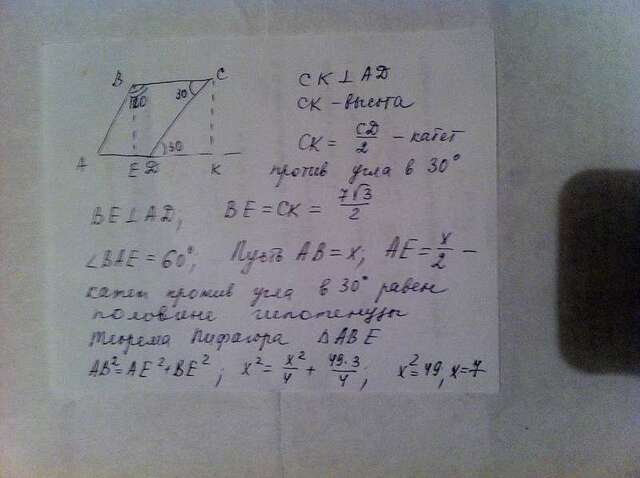 B C
120 30
30
A E D K
CK ⊥ AD
CK - высота
CK = CD/2 - катет
против угла в 30°
BE ⊥ AD, BE = CK = 7√3/2
∠BAE = 60°; Пусть AB = x; AE = x/2 -
катет против угла в 30° равен
половине гипотенузы
Теорема Пифагора ΔABE
AB² = AE² + BE²; x² = x²/4 + 49·3/4; x² = 49, x = 7